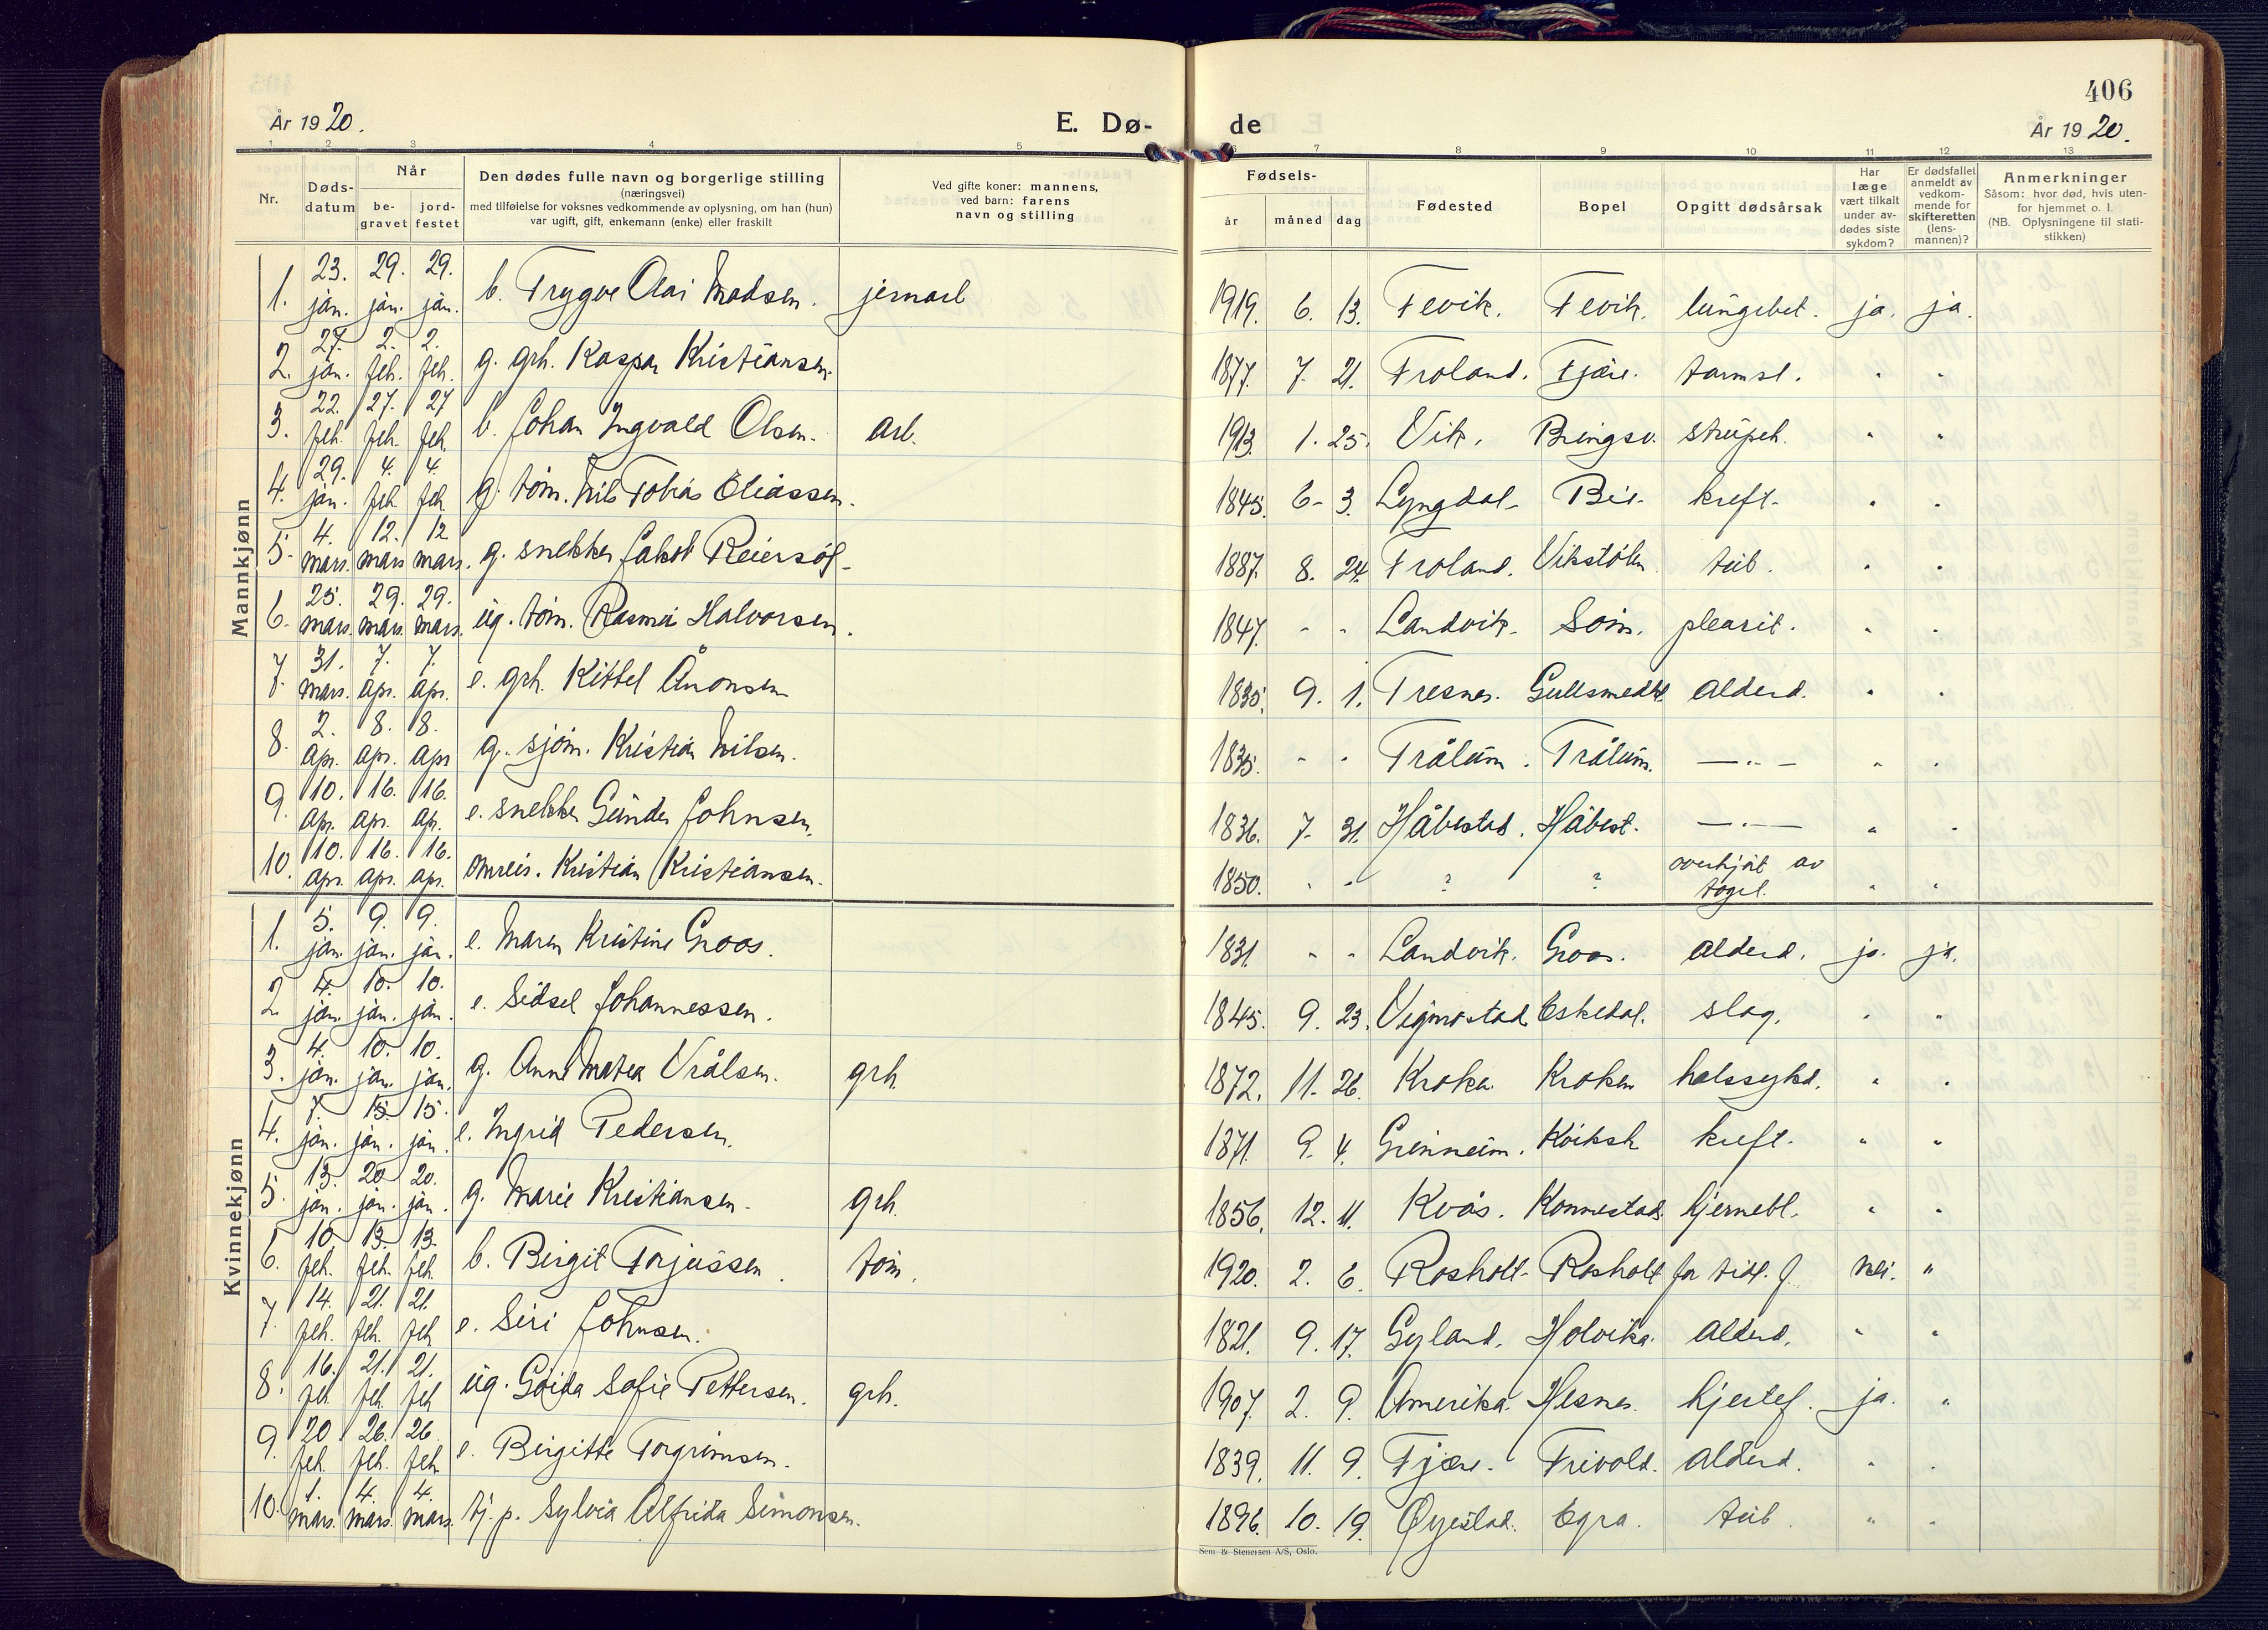 406
År 1920.
E. Dø-
de
År 1920.
1 2 3 4 5 6 7 8 9 10 11 12 13
Nr.
Døds-
datum
Når
be-
gravet
jord-
festet
Den dødes fulle navn og borgerlige stilling
(næringsvei)
med tilføielse for voksnes vedkommende av oplysning, om han (hun)
var ugift, gift, enkemann (enke) eller fraskilt
Ved gifte koner: mannens,
ved barn: farens
navn og stilling
Fødsels-
år måned dag
Fødested
Bopel
Opgitt dødsårsak
Har
læge
vært tilkalt
under av-
dødes siste
sykdom?
Er dødsfallet
anmeldt av
vedkom-
mende for
skifteretten
(lens-
mannen)?
Anmerkninger
Såsom: hvor død, hvis uten-
for hjemmet o. l.
(NB. Oplysningene til stati-
stikken)
Mannkjønn
1. 23. jan. 29. jan. 29. jan. b. Trygve Olai Madsen. jernarb 1919. 6. 13. Fevik. Fevik. lungebet. ja. ja.
2. 27. jan. 2. feb. 2. feb. g. grh. Kaspar Kristiansen. 1877. 7. 21. Froland. Fjære. tarmsl. " "
3. 22. feb. 27. feb. 27 feb. b. Johan Ingvald Olsen. arb. 1913. 1. 25. Vik. Bringsv. strupeh. " "
4. 29. jan. 4. feb. 4. feb. g. tøm. Nils Tobias Eliassen. 1845. 6- 3. Lyngdal- Bie- kreft- " "
5. 4. mars. 12. mars 12 mars. g. snekker Jakob Reiersøl- 1887. 8. 24. Froland. Vikstølen tub. " "
6. 25. mars. 29. mars. 29. mars. ug. tøm. Rasmus Halvorsen. 1847. - - Landvik- Søm. plearit. " "
7. 31. mars. 7. apr. 7. apr. e. grh. Kittel Ånonsen 1835. 9. 1. Tresnes. alderd. " "
8. 2. apr. 8. apr. 8. apr g. sjøm. Kristian Nilsen. 1835. - - Trålum. Trålum. —"— " "
9. 10. apr. 16. apr. 16. ap. e. snekker Gunder Johnsen. 1836. 7. 31. Håbestad. Håbest. —"— " "
10. 10. apr. 16. apr. 16. apr. omreis. Kristian Kristiansen. 1850. " " ? ? overkjørt av toget. " "
Kvinnekjønn
1. 5. jan. 9. jan. 9. jan. e. Maren Kristine Groos. 1831. - - Landvik. Groos. alderd. ja. ja.
2. 4. jan. 10. jan. 10. jan. e. Sidsel Johannessen. 1845. 9. 23. Vigmostad Eskedal. slag. " "
3. 4. jan. 10. jan. 10. jan. g. Anne Matea Vrålsen. grh. 1872. 11. 26. Kroken Kroken halssykd. " "
4. 7. jan. 15. jan. 15. jan. e. Ingrid Pedersen. 1871. 9. 4. kreft. " "
5. 13. jan. 20 jan. 20. jan. g. Marie Kristiansen. grh. 1856. 12. 11. Kvås. Konnestad. hjernebl. " "
6. 10 feb. 13. feb. 13. feb. b. Birgit Torjussen. tøm. 1920. 2. 6. Rosholt- Rosholt for tidl. f. nei. "
7. 14. feb. 21. feb. 21. feb e. Siri Johnsen. 1821. 9. 17. Gyland. Holvika. alderd. " "
8. 16. feb. 21. feb. 21. feb ug. Goida Sofie Pettersen. grh. 1907. 2. 9. Amerika. Hesnes. hjertef. ja. "
9. 20 feb. 26. feb. 26. feb e. Birgitte Torgrimsen. 1839. 11. 9. Fjære. Frivold. alderd. " "
10. 1. mars. 4. mars. 4. mars. tj. p. Sylvia Alfrida Simonsen. 1896. 10. 19. Øyestad. Egra. tub. " "
Sem & Stenersen A/S, Oslo.